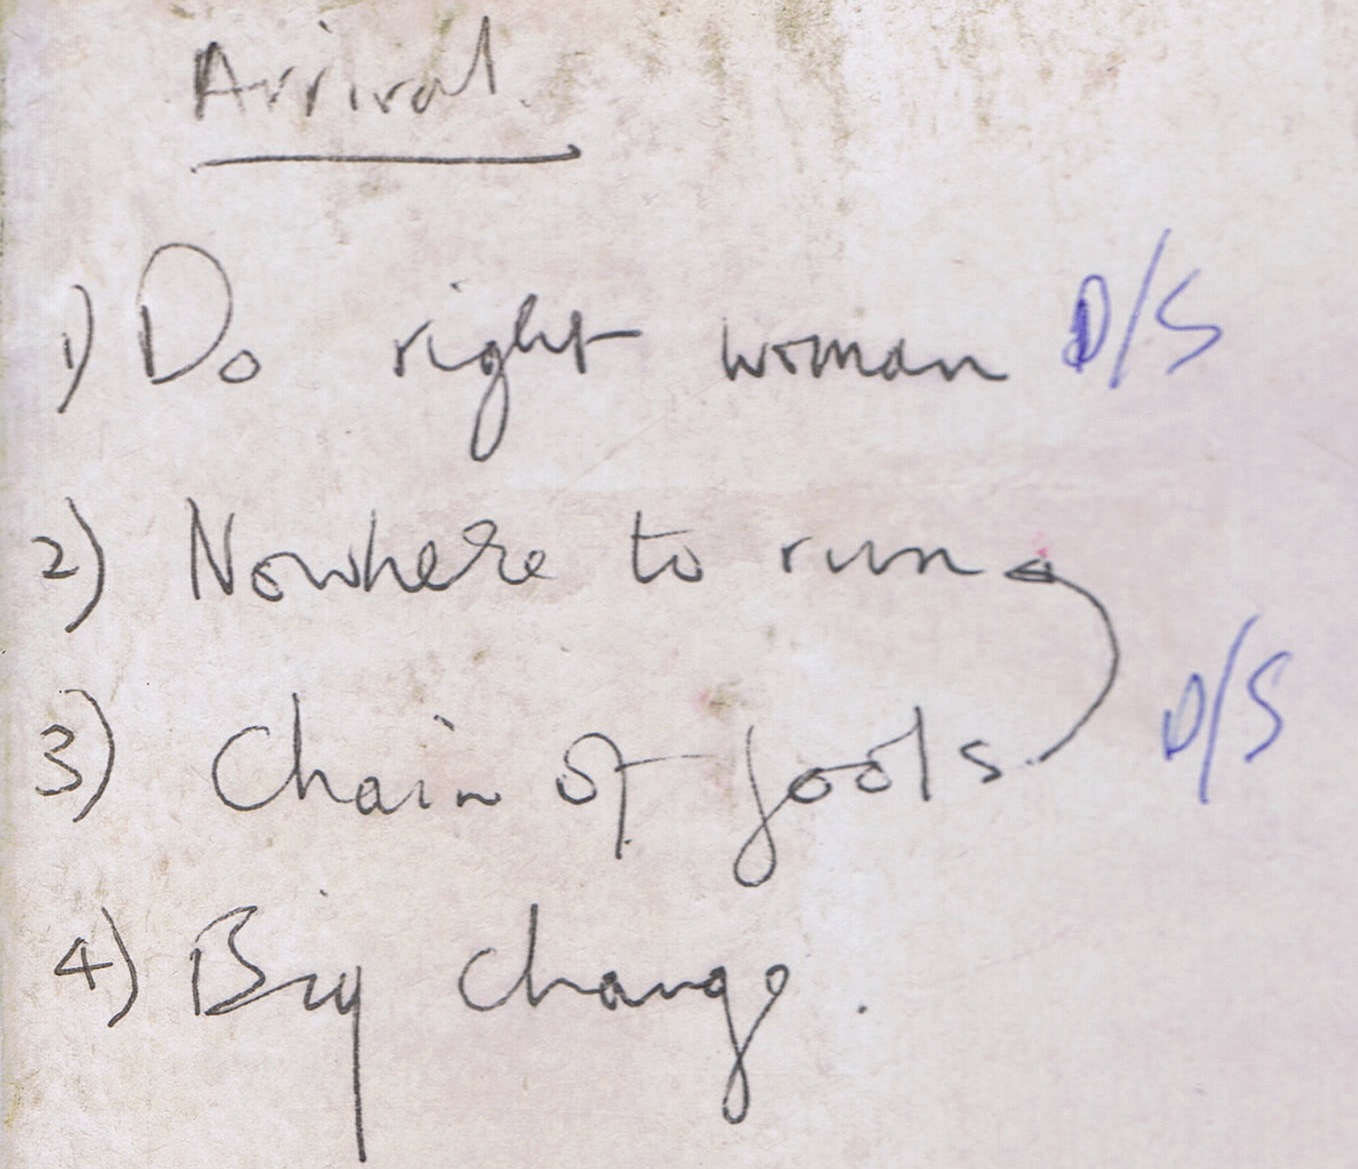 Arrival
1) Do right woman D/S
2) Nowhere to run
3) Chain of fools D/S
4) Big change.